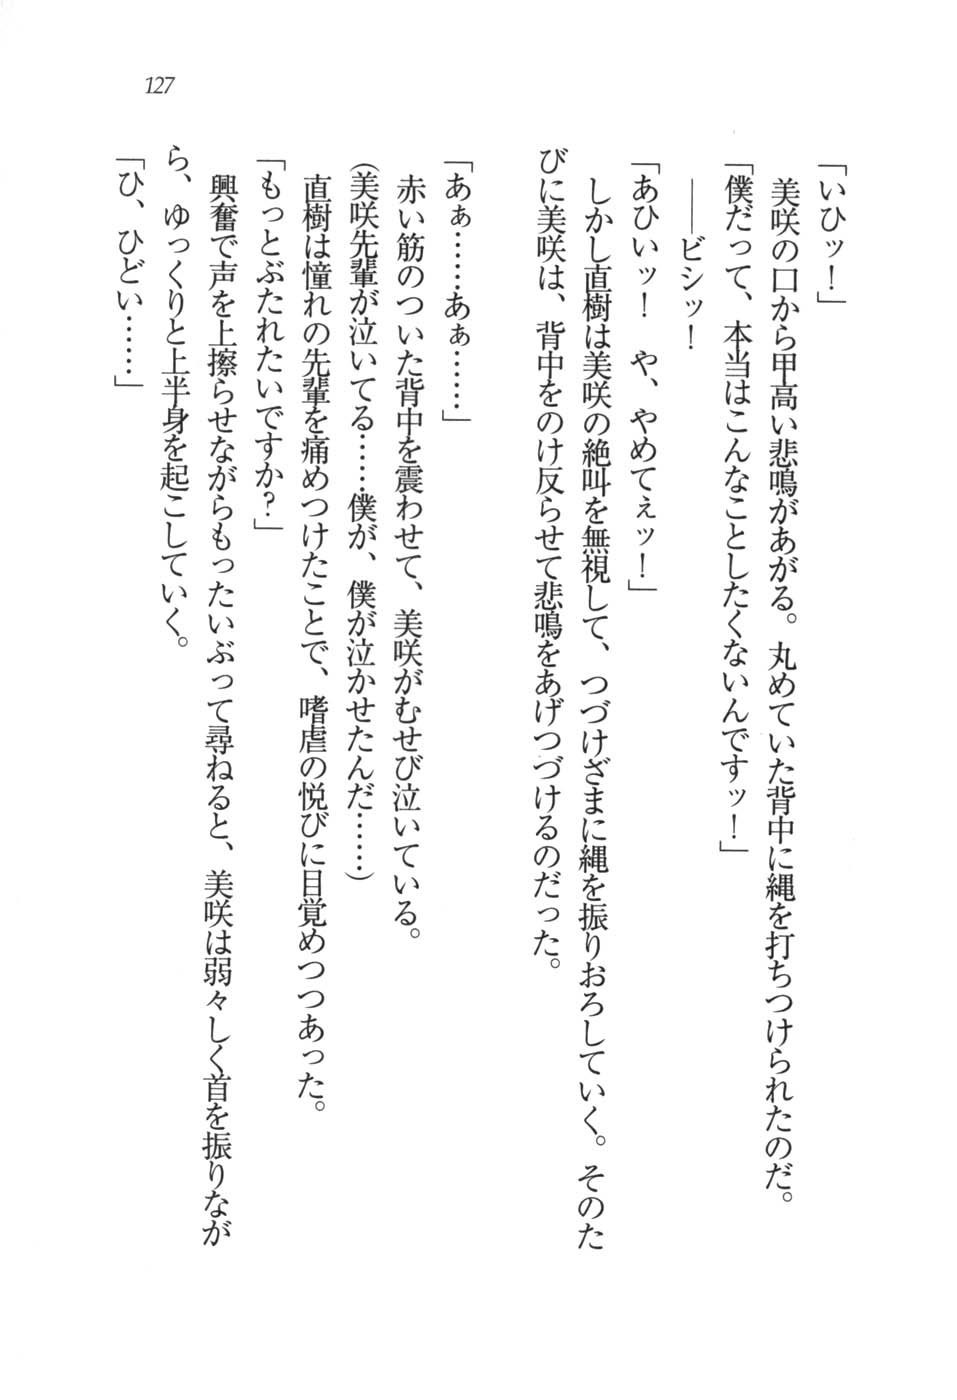 127
「いひッ！」
美咲の口から甲高い悲鳴があがる。丸めていた背中に縄を打ちつけられたのだ。
「僕だって、本当はこんなことしたくないんですッ！」
――ビシッ！
「あひいッ！　や、やめてぇッ！」
しかし直樹は美咲の絶叫を無視して、つづけざまに縄を振りおろしていく。そのた
びに美咲は、背中をのけ反らせて悲鳴をあげつづけるのだった。
「あぁ……あぁ……」
赤い筋のついた背中を震わせて、美咲がむせび泣いている。
(美咲先輩が泣いてる……僕が、僕が泣かせたんだ……)
直樹は憧れの先輩を痛めつけたことで、嗜虐の悦びに目覚めつつあった。
「もっとぶたれたいですか？」
興奮で声を上擦らせながらもったいぶって尋ねると、美咲は弱々しく首を振りなが
ら、ゆっくりと上半身を起こしていく。
「ひ、ひどい……」